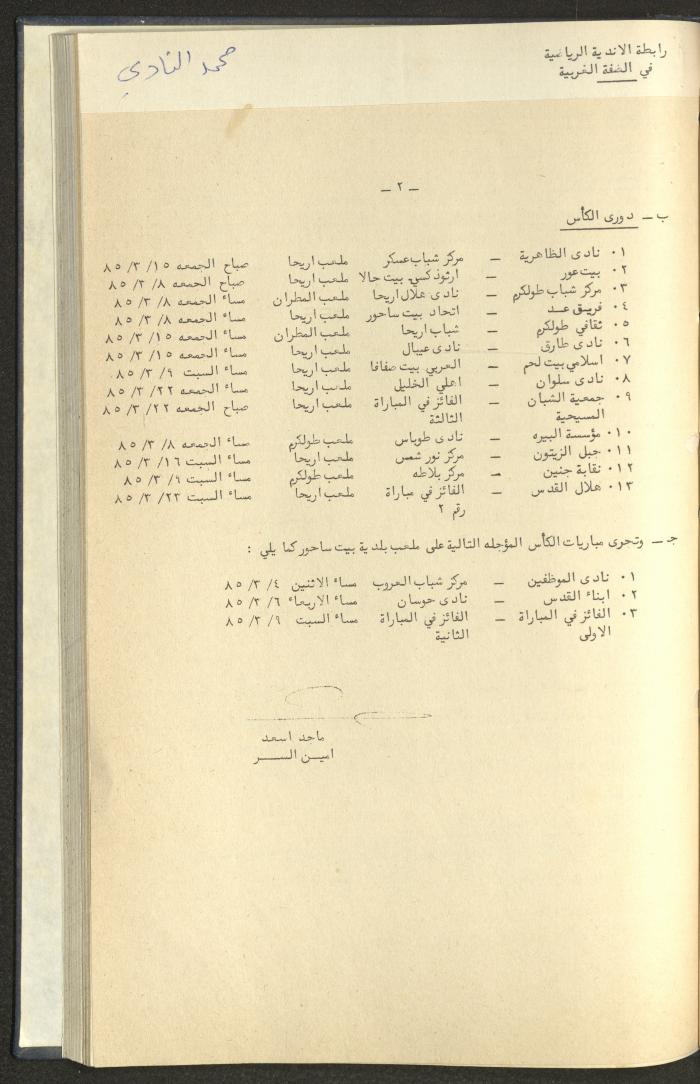 رابطة الاندية الرياضية
في الضفة الغربية
محمد النادي
– ٢ –
ب – دورى الكأس
٠١ نادى الظاهرية – مركز شباب عسكر ملعب اريحا صباح الجمعه ١٥ /٣ /٨٥
٠٢ بيت عور – ارثوذكسي بيت جالا ملعب اريحا صباح الجمعه ٨ /٣ /٨٥
٠٣ مركز شباب طولكرم – نادى هلال اريحا ملعب المطران مساء الجمعه ٨ /٣ /٨٥
٠٤ فريق عد – اتحاد بيت ساحور ملعب اريحا مساء الجمعه ٨ /٣ /٨٥
٠٥ ثقافي طولكرم – شباب اريحا ملعب المطران مساء الجمعه ١٥ /٣ /٨٥
٠٦ نادى طارق – نادى عيبال ملعب اريحا مساء الجمعه ١٥ /٣ /٨٥
٠٧ اسلامي بيت لحم – العربي بيت صفافا ملعب اريحا مساء السبت ٩ /٣ /٨٥
٠٨ نادى سلوان – اهلي الخليل ملعب اريحا مساء الجمعه ٢٢ /٣ /٨٥
٠٩ جمعية الشبان – الفائز في المباراة ملعب اريحا صباح الجمعه ٢٢ /٣ /٨٥
المسيحية الثالثة
٠١٠ مؤسسة البيره – نادى طوباس ملعب طولكرم مساء الجمعه ٨ /٣ /٨٥
٠١١ جبل الزيتون – مركز نور شمس ملعب اريحا مساء السبت ١٦ /٣ /٨٥
٠١٢ نقابة جنين – مركز بلاطه ملعب طولكرم مساء السبت ٩ /٣ /٨٥
٠١٣ هلال القدس – الفائز في مباراة ملعب اريحا مساء السبت ٢٣ /٣ /٨٥
رقم ٢
جـ – وتجرى مباريات الكأس المؤجله التالية على ملعب بلدية بيت ساحور كما يلي :
٠١ نادى الموظفين – مركز شباب العروب مساء الاثنين ٤ /٣ /٨٥
٠٢ ابناء القدس – نادى حوسان مساء الاربعاء ٦ /٣ /٨٥
٠٣ الفائز في المباراة – الفائز في المباراة مساء السبت ٩ /٣ /٨٥
الاولى الثانية
ماجد اسعد
امين السر